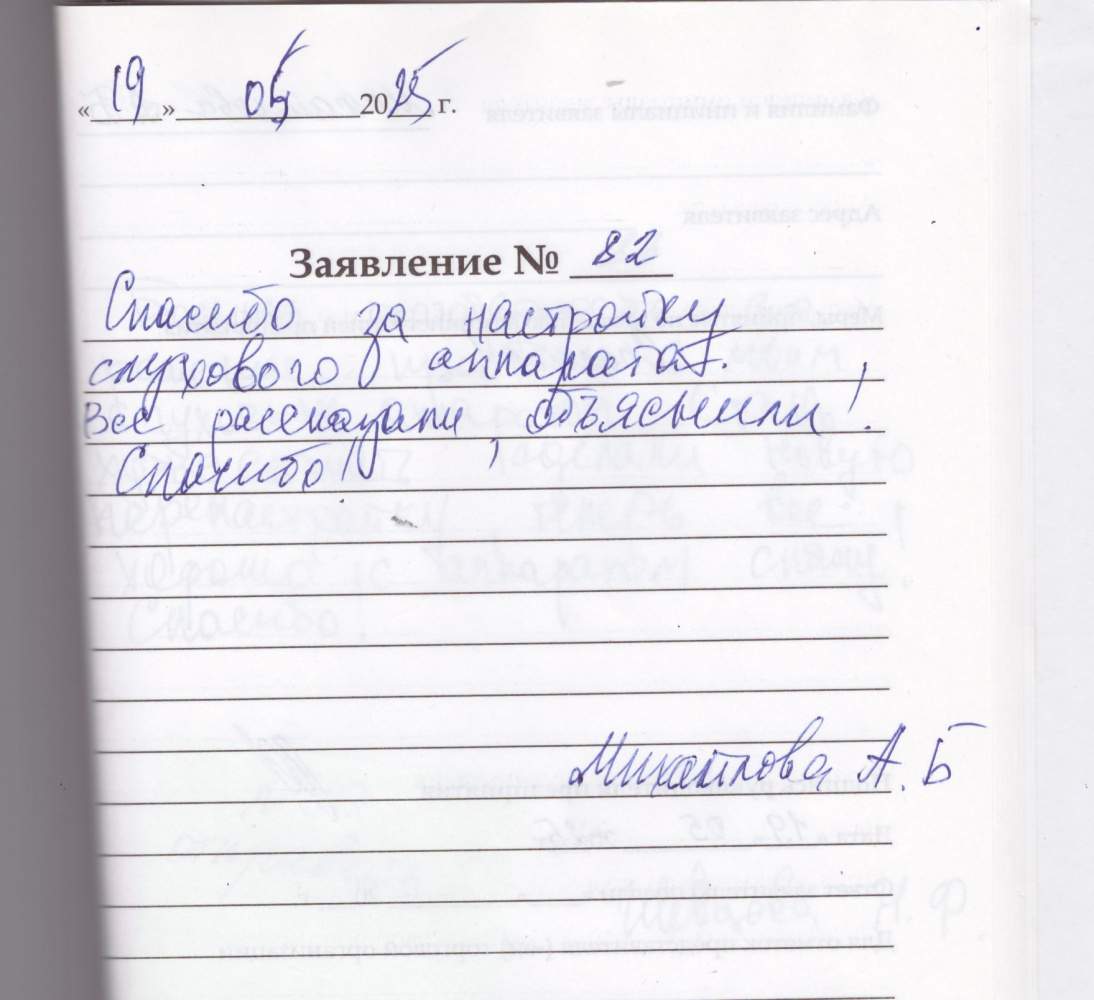 «19» 05 2025 г.
Заявление № 82
Спасибо за настройку
слухового аппарата.
Все рассказали, объяснили!
Спасибо!
Михайлова А. Б